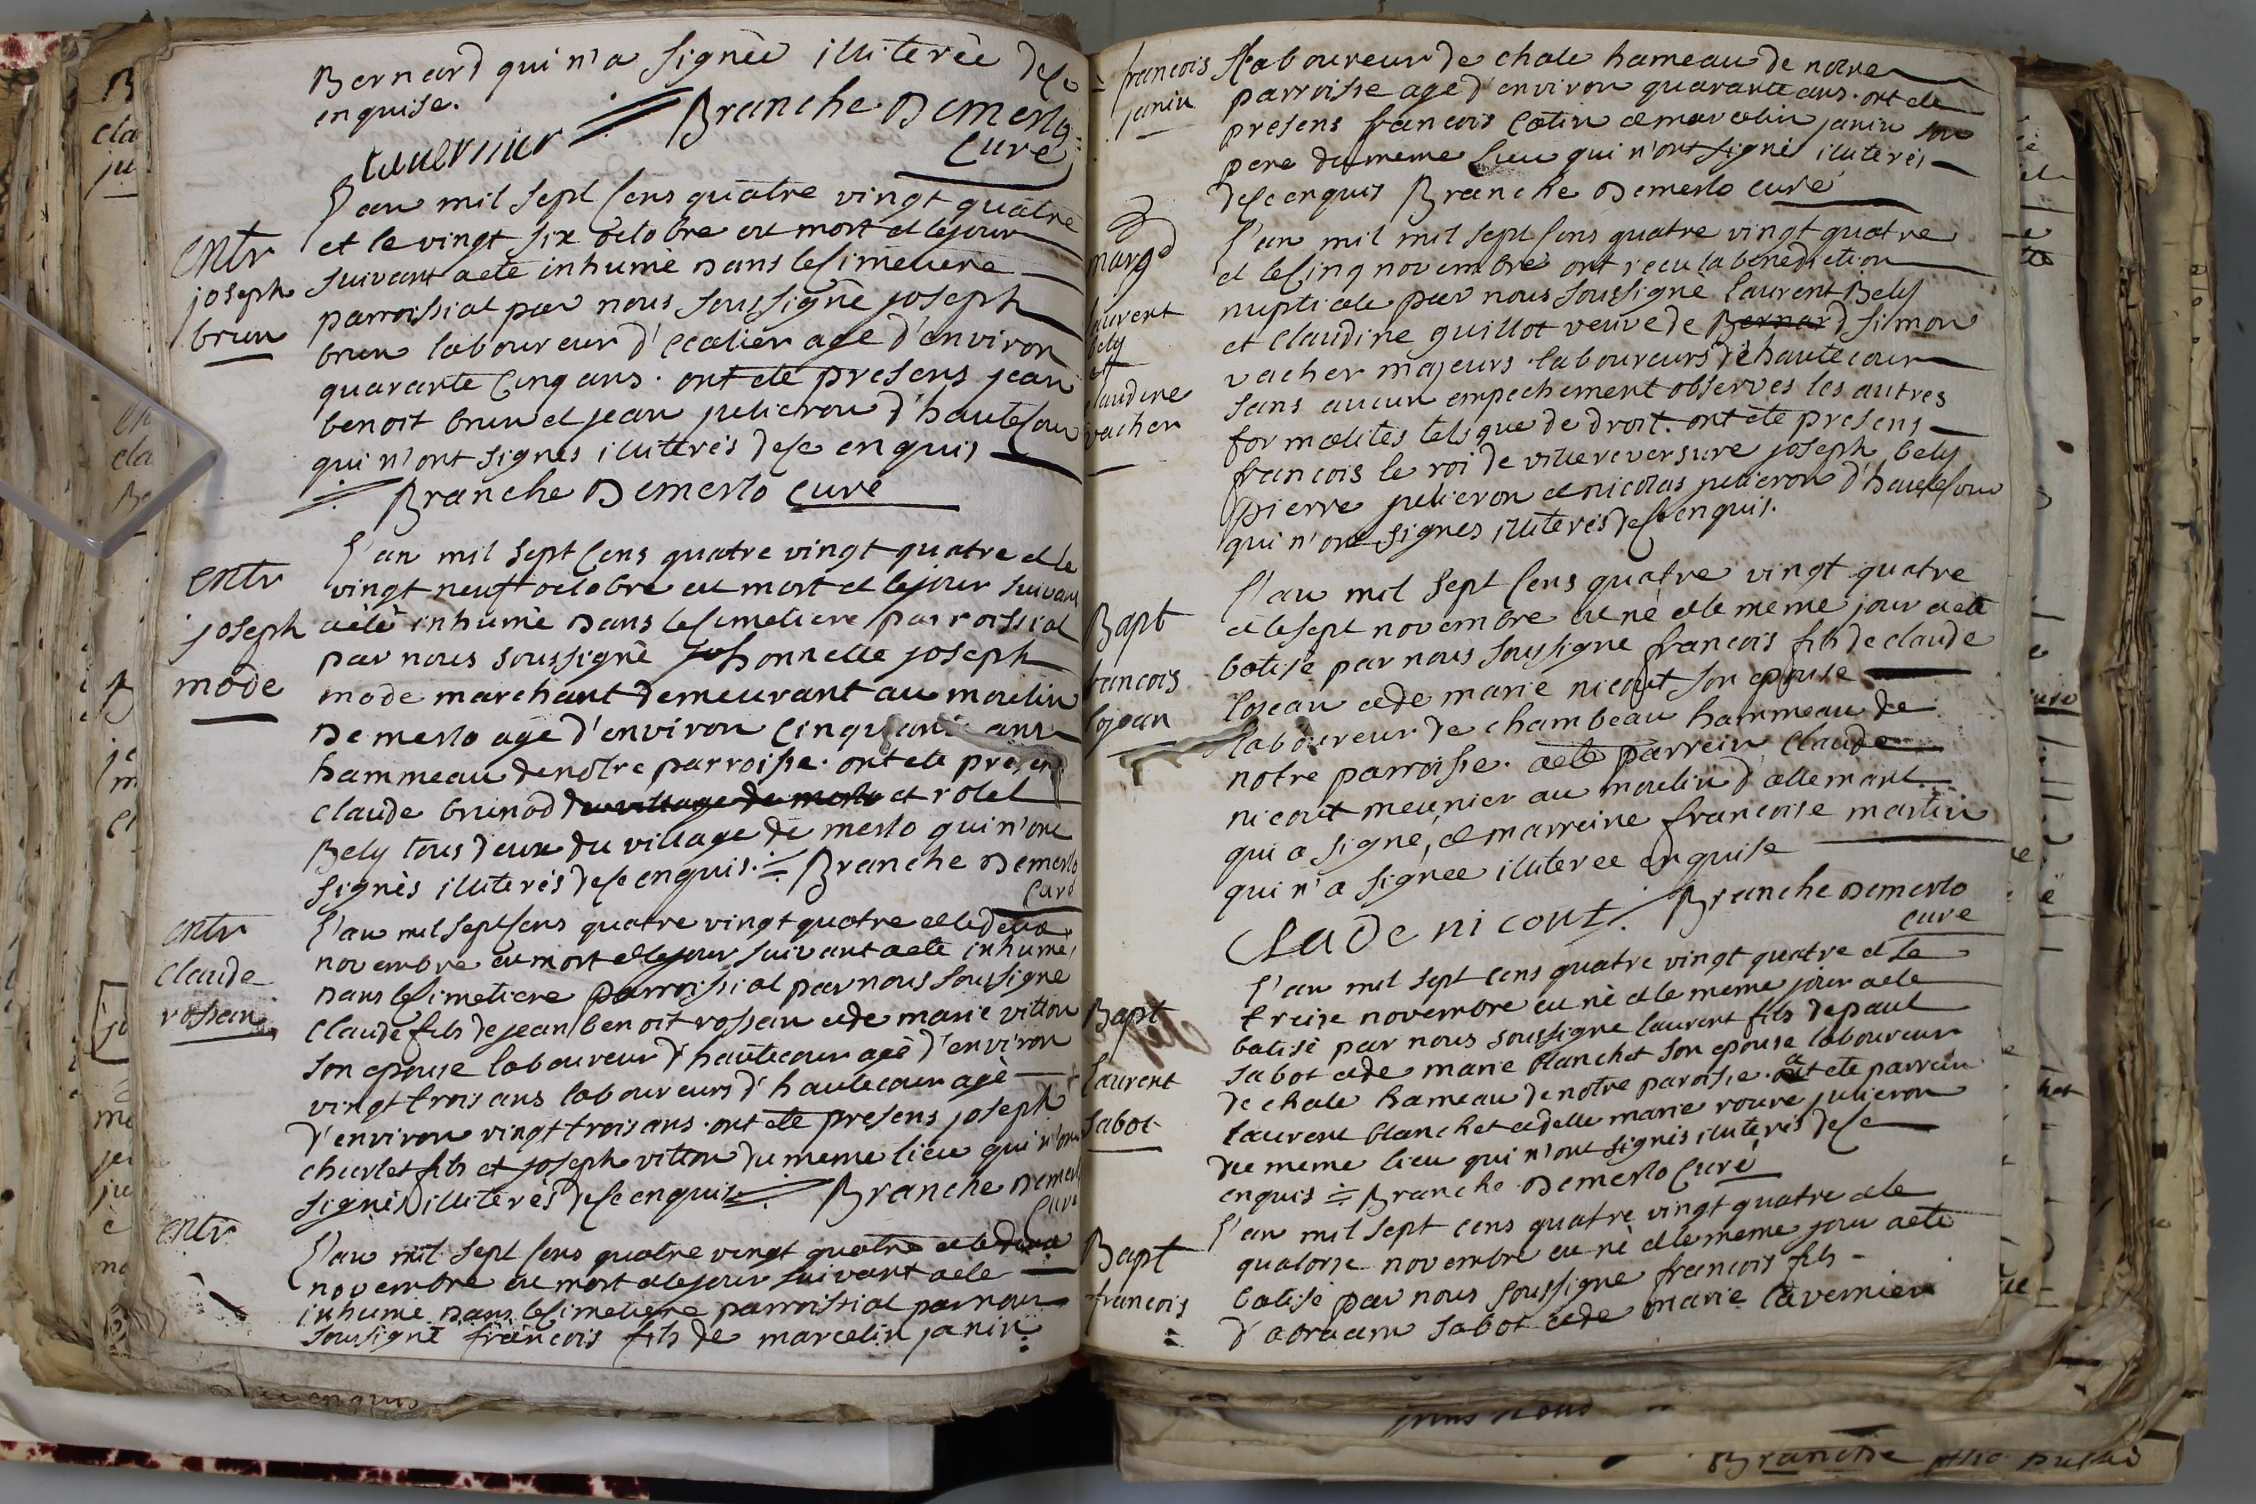 Bernard qui n'a signée illiterée de ce
enquise.
tavernier Branche Demerlo
Curé
entr
joseph
brun
L'an mil sept Cens quatre vingt quatre
et le vingt six octobre est mort et le jour
suivant a eté inhumé Dans le Cimetiere
parroissial par nous soussigné joseph
brun laboureur d'ecalier agé d'environ
quarante Cinq ans. ont eté presens jean
benoit brun et jean julieron d'hauteCour
qui n'ont signés illiterés de ce enquis
Branche Demerlo Curé
entr
joseph
mode
L'an mil sept Cens quatre vingt quatre et le
vingt neuf octobre est mort et le jour suivant
a eté inhumé Dans le Cimetiere parroissial
par nous soussigné honnette joseph
mode marchant demeurant au moulin
De merlo agé d'environ Cinquante ans
hammeau de nôtre parroisse. ont eté presens
Claude brunod du village de merlo et rolet
Bely tous deux du village de merlo qui n'ont
signés illiterés de ce enquis. Branche Demerlo
Curé
entr
Claude
rossean
L'an mil sept Cens quatre vingt quatre et le deux
novembre est mort et le jour suivant a eté inhumé
Dans le Cimetiere parroissial par nous soussigné
Claude fils de jean benoit rossean et de marie vitton
son epouse laboureur d'hautecour agé d'environ
vingt trois ans laboureurs d'hautecour agé
d'environ vingt trois ans. ont eté presens joseph
charlet fils et joseph vitton du meme lieu qui n'ont
signés illiterés de ce enquis. Branche Demerlo
Curé
entr
L'an mil sept Cens quatre vingt quatre et le deux
novembre est mort et le jour suivant a eté
inhumé Dans le Cimetiere parroissial par nous
soussigné françois fils de marcelin janin
francois
janin
laboureur de chale hameau de notre
parroisse agé d'environ quarante ans. ont eté
presens francois Catin et marcelin janin son
pere du meme lieu qui n'ont signés illiterés
de ce enquis Branche Demerlo curé
marg
laurent
bely
et
claudine
vacher
L'an mil mil sept Cens quatre vingt quatre
et le Cinq novembre ont recu la benediction
nuptiale par nous soussigné laurent Bely
et Claudine guillot veuve de Bernard simon
vacher majeurs laboureurs d'hautecour
sans aucun empechement observés les autres
formalités tels que de droit. ont eté presens
francois le roi de villereversure joseph bely
pierre julieron et nicolas julieron d'hauteCour
qui n'ont signés illiterés de ce enquis.
Bapt
francois
lojean
L'an mil sept Cens quatre vingt quatre
et le sept novembre est né et le meme jour a eté
batisé par nous soussigné francois fils de claude
lojean et de marie nicout son epouse
laboureur de chambeau hammeau de
notre parroisse. a eté parrein Claude
nicout meunier au moulin d'allemant
qui a signé, et marreine francoise martin
qui n'a signée illiterée enquise
Clade nicout. Branche Demerlo
curé
Bapt
laurent
sabot
L'an mil sept cens quatre vingt quatre et le
treise novembre est né et le meme jour a eté
batisé par nous soussigné laurent fils de paul
sabot et de marie blanchet son epouse laboureur
de chale hameau de notre paroisse. a eté parrein
laurent blanchet et delle marie roure julieron
du meme lieu qui n'ont signés illiterés de ce
enquis Branche Demerlo Curé
Bapt
francois
L'an mil sept cens quatre vingt quatre et le
quatorse novembre est né et le meme jour a eté
batisé par nous soussigné francois fils
d'abraam sabot et de marie tavernier